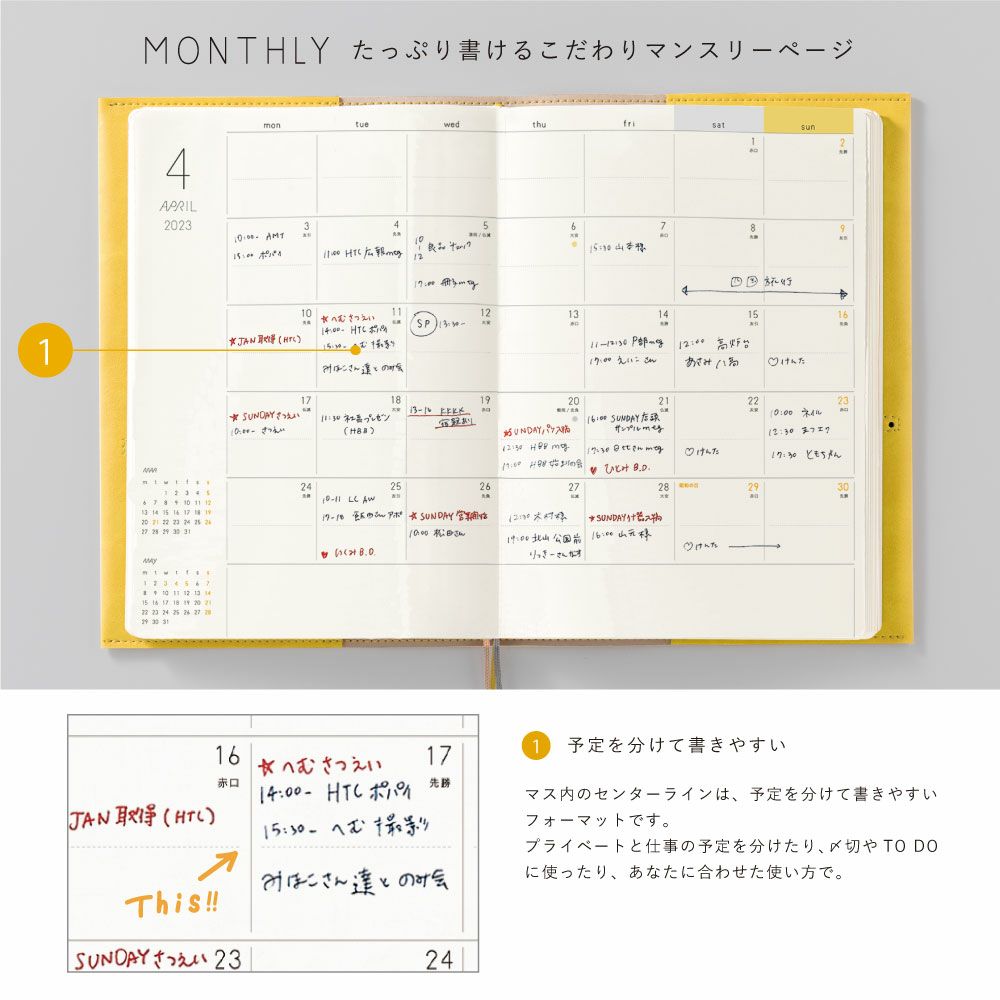 MONTHLY たっぷり書けるこだわりマンスリーページ
mon tue wed thu fri sat sun
4
APRIL
2023
1 赤口
2 先勝
3 友引
10:00- AMT
15:00 ポパイ
4 先負
11:00 HTC 広報mtg
5 清明/仏滅
10
12
17:00 冊子mtg
6 大安
7 赤口
15:30 山本様
8 先勝
9 友引
旅行
10 先負
★JAN取得(HTC)
11 仏滅
★へむさつえい
14:00- HTC ポパイ
15:30- へむ 撮影
みほこさん達とのみ会
12 大安
SP 13:30-
13 赤口
14 先勝
11-12:30 P部mtg
17:00 えいこさん
15 友引
12:00
16 先負
♡けんた
17 仏滅
★SUNDAYさつえい
10:00- さつえい
18 大安
11:30 社長プレゼン
(HBB)
19 赤口
13-16
20 穀雨/先負
12:30 HBB mtg
21 仏滅
16:00 SUNDAY店頭
サンプルmtg
♥ ひとみB.D.
22 大安
♡けんた
23 赤口
10:00 ネイル
12:30 まつエク
17:30 ともちゃん
24 先勝
25 友引
10-11 LC AW
♥ いくみB.D.
26 先負
10:00 松田さん
27 仏滅
12:30 木村様
19:00 北山公園前
28 大安
16:00 山元様
昭和の日 29 赤口
♡けんた
30 先勝
MAR
m t w t f s s
1 2 3 4 5
6 7 8 9 10 11 12
13 14 15 16 17 18 19
20 21 22 23 24 25 26
27 28 29 30 31
MAY
m t w t f s s
1 2 3 4 5 6 7
8 9 10 11 12 13 14
15 16 17 18 19 20 21
22 23 24 25 26 27 28
29 30 31
1
16 赤口
JAN取得(HTC)
This!!
17 先勝
☆へむさつえい
14:00- HTC ポパイ
15:30- へむ 撮影
みほこさん達とのみ会
SUNDAYさつえい 23
24
1 予定を分けて書きやすい
マス内のセンターラインは、予定を分けて書きやすい
フォーマットです。
プライベートと仕事の予定を分けたり、〆切や TO DO
に使ったり、あなたに合わせた使い方で。